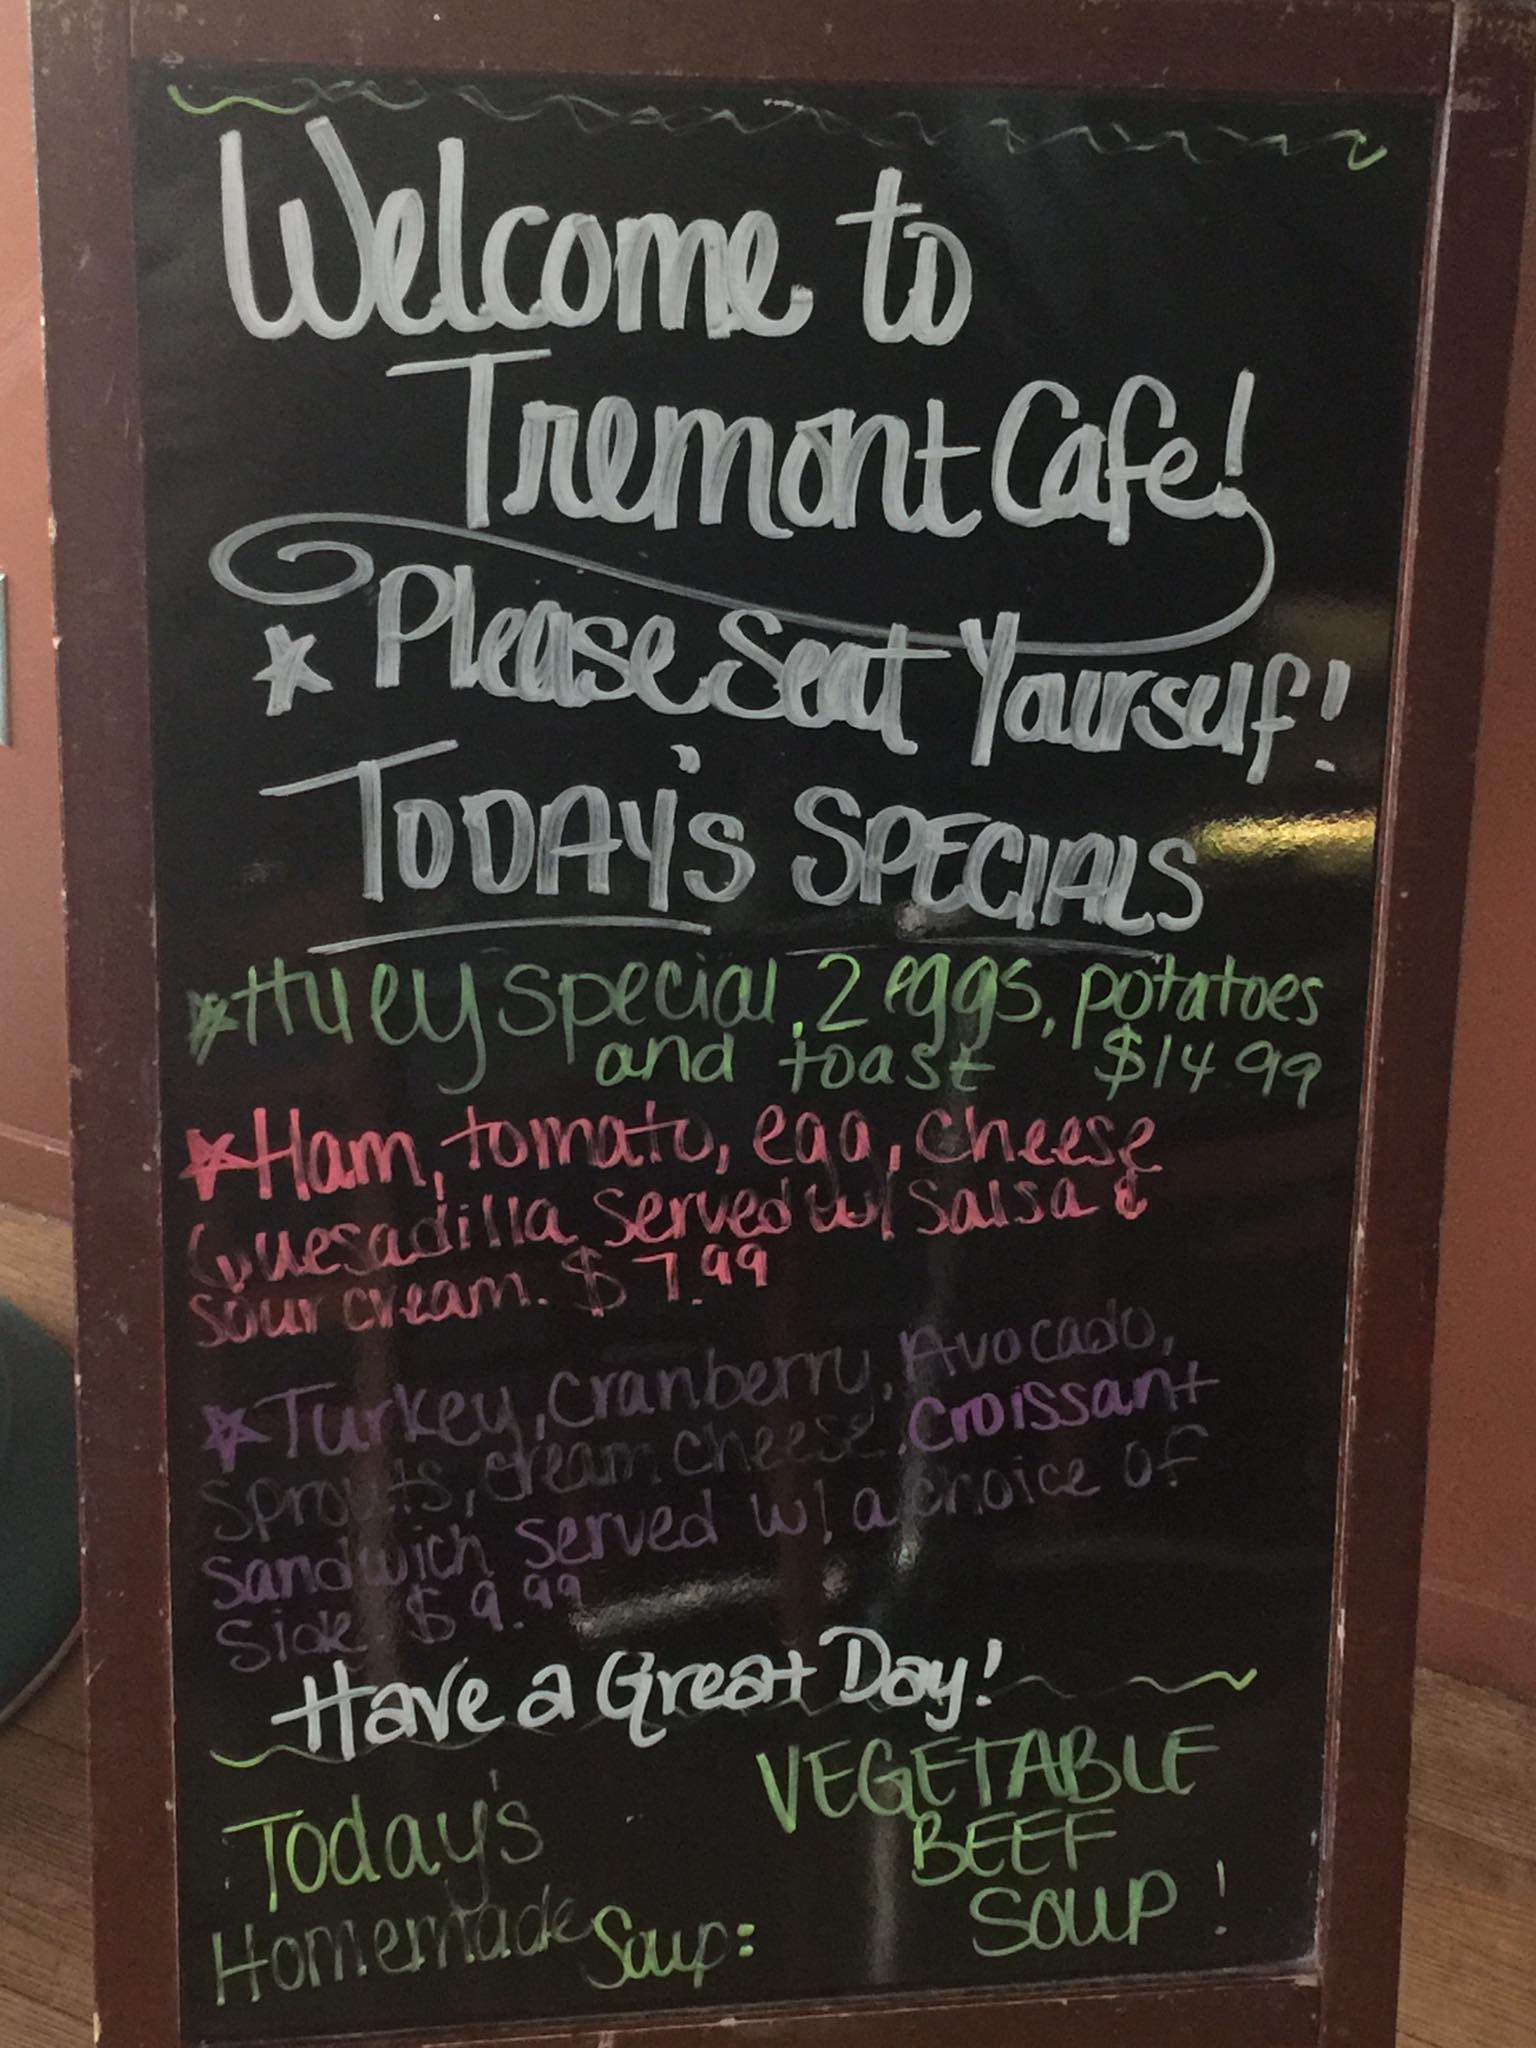 Welcome to
Tremont Cafe!
Please Seat Yourself!
TODAY'S SPECIALS
Huey special, 2 eggs, potatoes
and toast $14.99
Ham, tomato, egg, cheese
Quesadilla served w/ salsa &
sour cream. $7.99
Turkey, cranberry, Avocado,
sprouts, cream cheese croissant
sandwich served w/ a choice of
side $9.99
Have a Great Day!
Today's
Homemade Soup:
VEGETABLE
BEEF
SOUP!